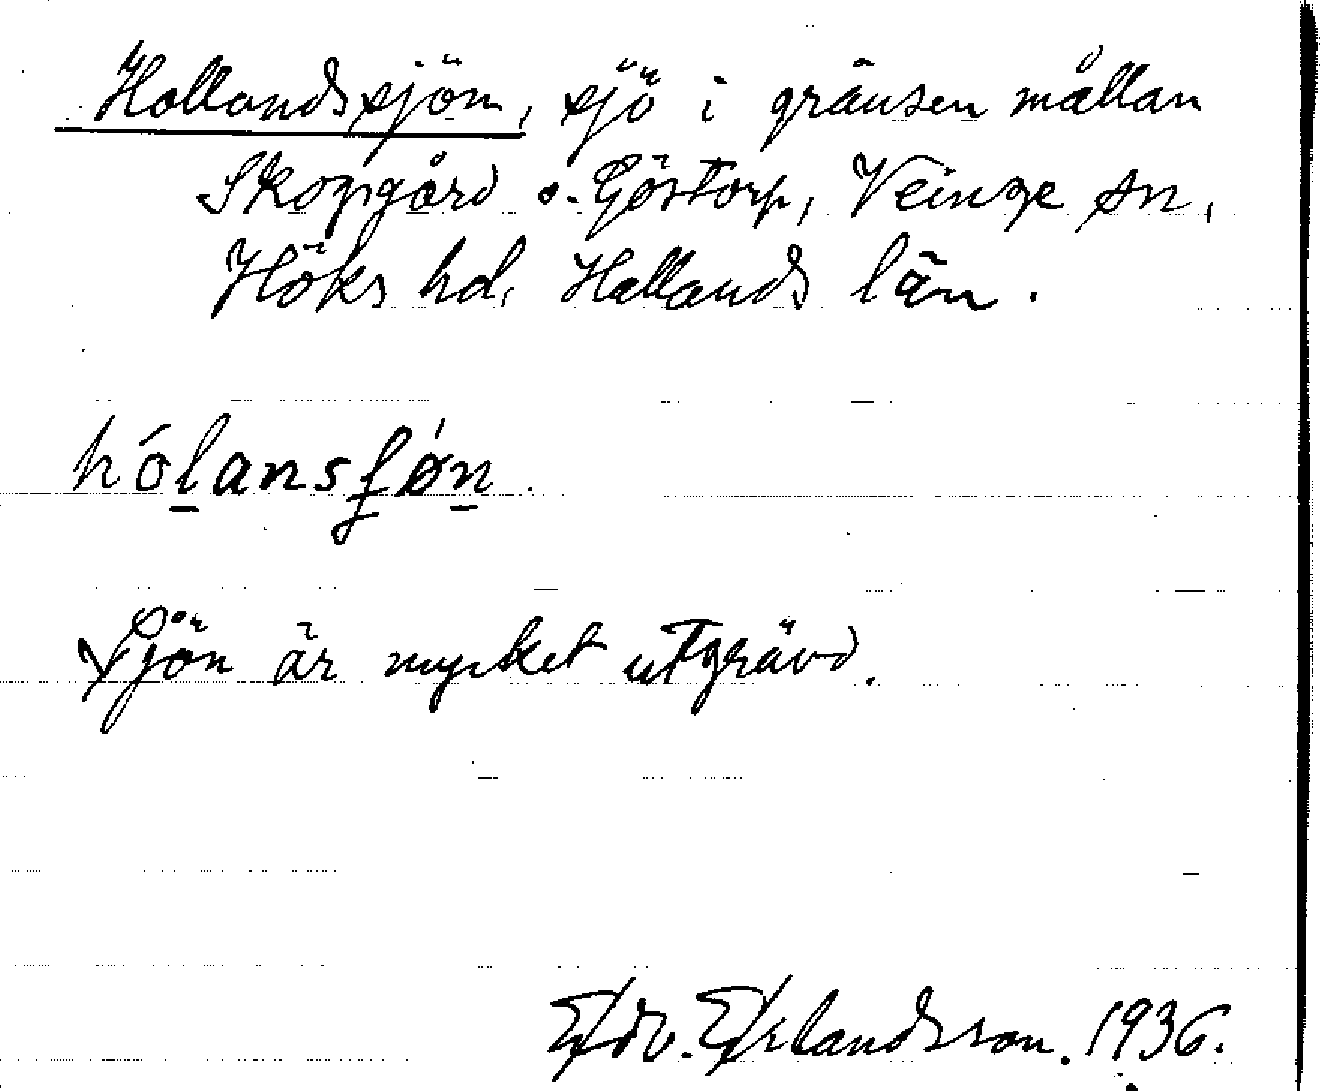 Hollandssjön, sjö i gränsen mällan
Skogsgård o. Göstorp, Veinge sn,
Höks hd, Hallands län.
hólansʃǿn.
Sjön är mycket utgrävd.
Edv. Erlandsson. 1936.